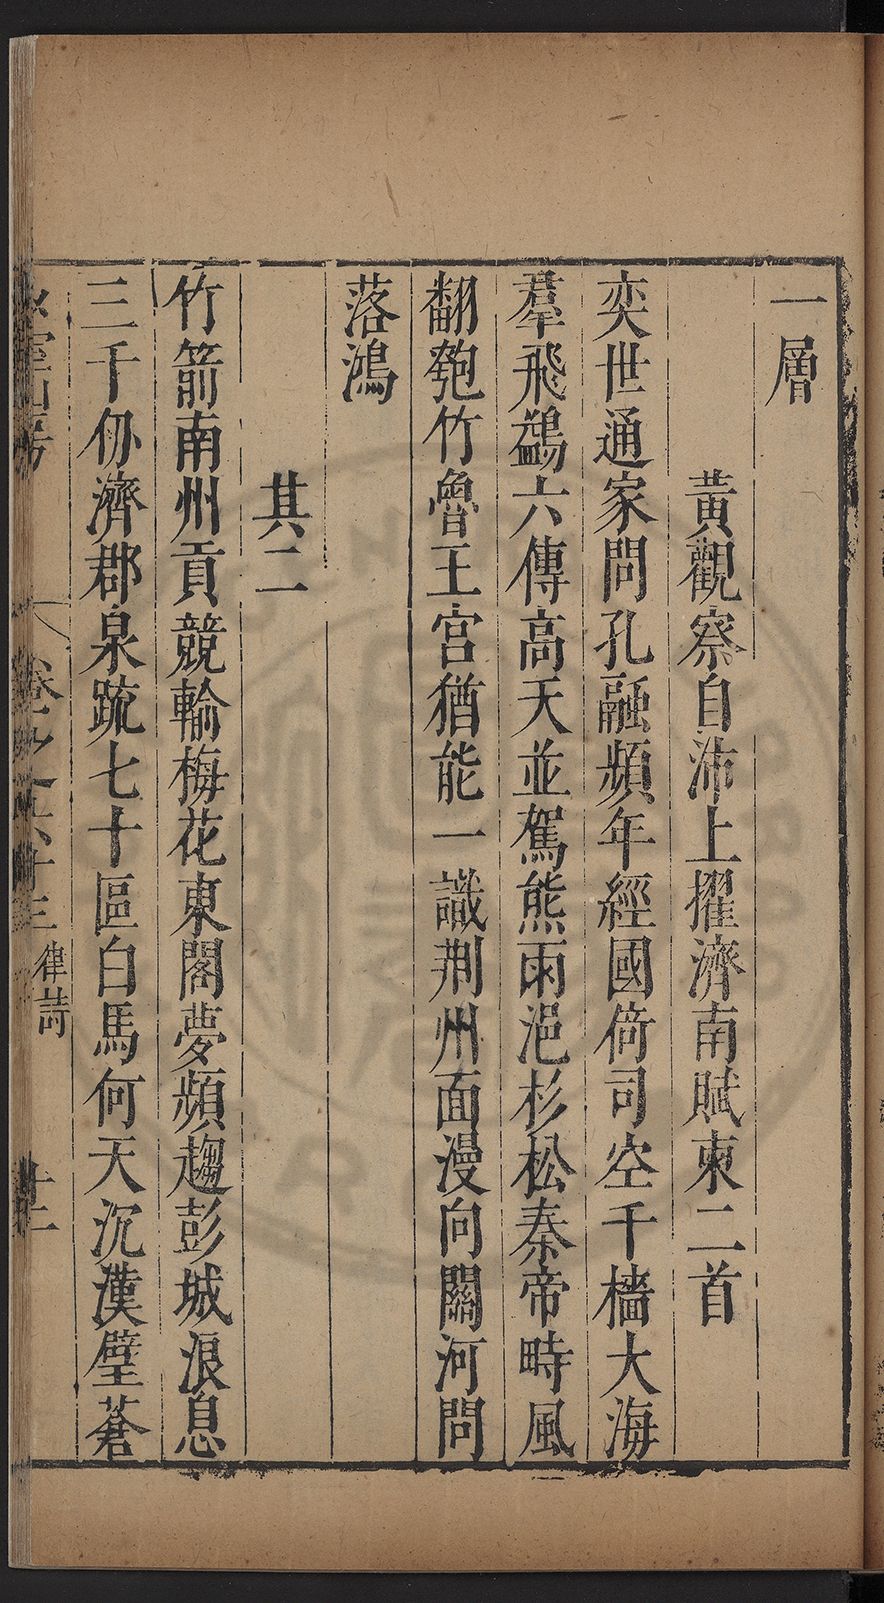 一層
黃觀察自沛上擢濟南賦柬二首
奕世通家問孔融頻年經國倚司空千檣大海
羣飛鷁六傳高天並駕熊雨浥杉松秦帝畤風
翻匏竹魯王宮猶能一識荆州面漫向關河問
落鴻
其二
竹箭南州貢競輸梅花東閣夢頻趨彭城浪息
三千仞濟郡泉疏七十區白馬何天沉漢璧蒼
律詩